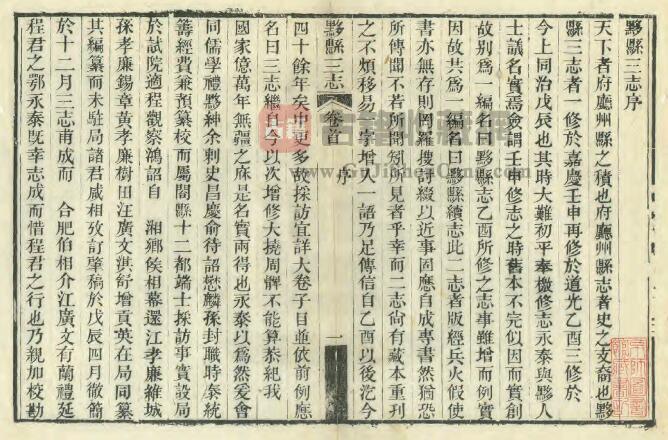 黟縣三志序
天下者府廳州縣之積也府廳州縣志者史之支裔也黟
縣三志者一修於嘉慶壬申再修於道光乙酉三修於
今上同治戊辰也其時大難初平奉檄修志永泰與黟人
士議名實焉僉謂壬申修志之時舊本不完似因而實創
故别爲一編名曰黟縣志乙酉所修之志事雖增而例實
因故共爲一編名曰黟縣續志此二志者版經兵火假使
書亦無存則網羅搜討綴以近事固應自成專書然猶恐
所傳聞不若所聞矧所見者乎幸而二志尙有藏本重刋
之不煩移易一字增入一語乃足傳信自乙酉以後汔今
黟縣三志
卷首
序
一
四十餘年矣中更多故採訪宜詳大卷子目並依前例應
名曰三志繼自今以次增修大撓周髀不能算恭紀我
國家億萬年無疆之庥是名實兩得也永泰以爲然爰會
同儒學黟紳余刺史昌慶俞待詔懋麟孫封職時泰統
籌經費兼預纂校而屬闔縣十二都端士採訪事實設局
於試院適程觀察鴻詔自
湘鄉侯相幕還江孝廉維城
孫孝廉錫章黃孝廉樹田汪廣文淇舒增貢英在局同纂
其編纂而未駐局諸君咸相攷訂肇稿於戊辰四月徹簡
於十二月三志甫成而
合肥伯相介江廣文有蘭禮延
程君之鄂永泰旣幸志成而惜程君之行也乃親加校勘